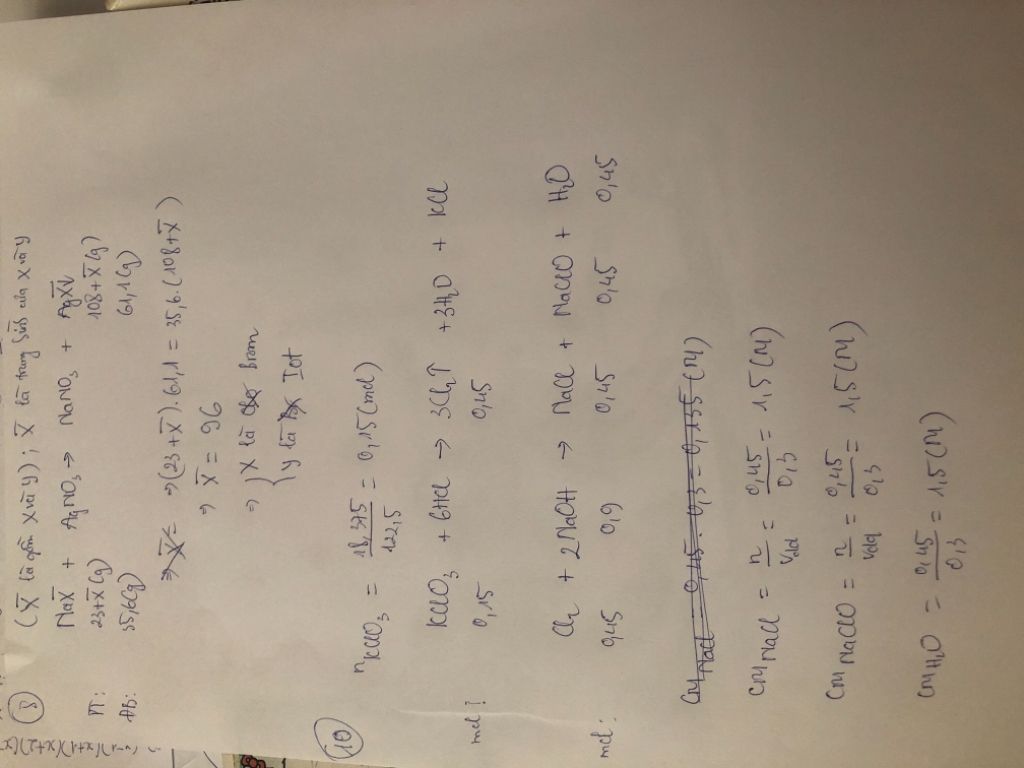 ③ (X̄ là gồm X và Y); X̄ là trung bình của X và Y
NaX̄ + AgNO₃ → NaNO₃ + AgX̄↓
PT: 23+X̄(g) 108+X̄(g)
ĐB: 35,6(g) 61,1(g)
⇒ (23+X̄).61,1 = 35,6.(108+X̄)
⇒ X̄ = 96
⇒ { X là Brom
Y là Iot
⑩ nKClO₃ = 18,375/122,5 = 0,15(mol)
KClO₃ + 6HCl → 3Cl₂↑ + 3H₂O + KCl
mol: 0,15 0,45
Cl₂ + 2NaOH → NaCl + NaClO + H₂O
mol: 0,45 0,9 0,45 0,45 0,45
CM NaCl = 0,45 . 0,3 = 0,135 (M)
CM NaCl = n/Vdd = 0,45/0,3 = 1,5(M)
CM NaClO = n/Vdd = 0,45/0,3 = 1,5(M)
CM H₂O = 0,45/0,3 = 1,5(M)